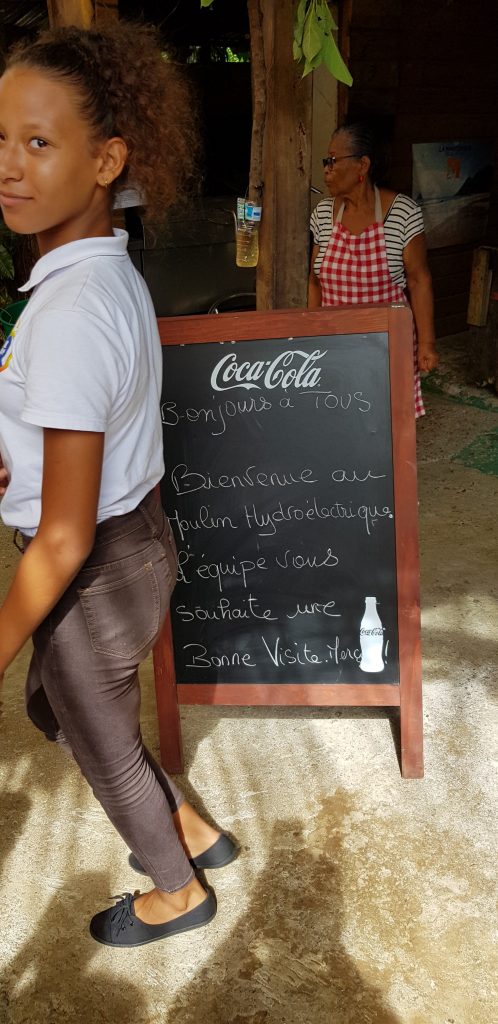 Coca-Cola
Bonjours à TOUS
Bienvenue au
Moulin Hydroélectrique.
L'équipe vous
souhaite une
Bonne Visite. Merci !
Coca-Cola